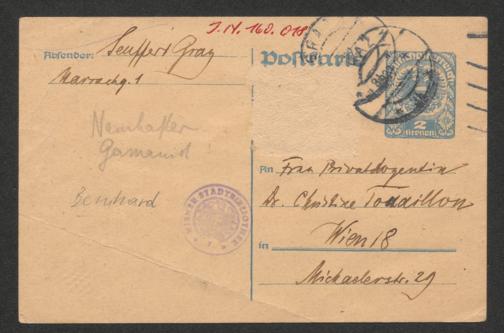 J. N. 160.018
Absender: Seuffert Graz
Harrachg. 1
Postkarte
2
Kronen
Namhafter
Germanist
Bernhard
WIENER STADTBIBLIOTHEK
An Frau Privatdozentin
Dr. Christine Touaillon
Wien 18
in
Michaelerstr. 29